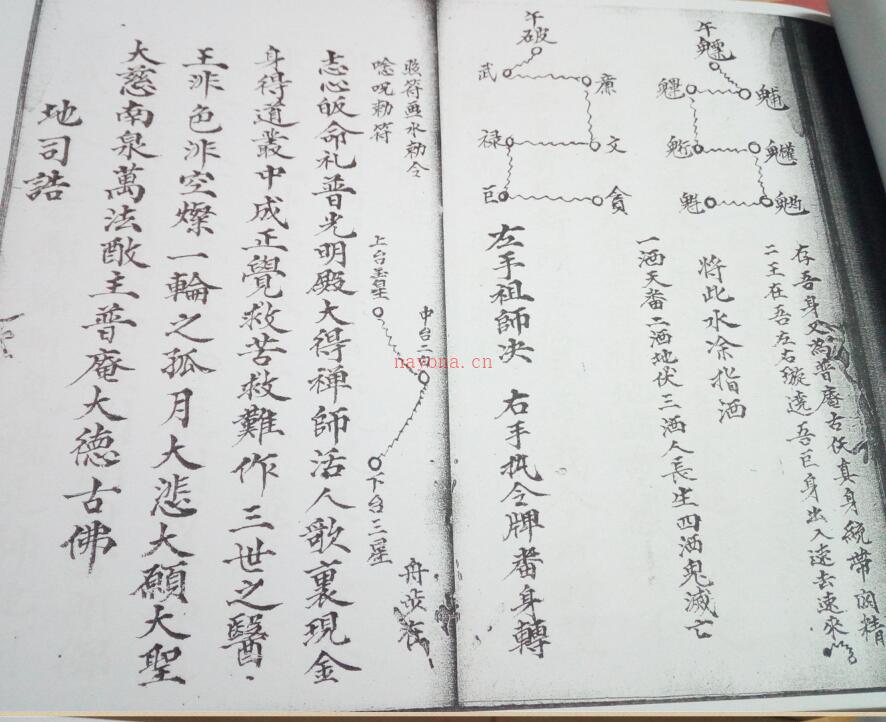 午
破
武
廉
禄
文
巨
貪
午
魒
魓
魁
存吾身又為普庵古仸真身統帶
二王在吾左右璇遶吾巨身出入速去速來
將此水凃指洒
一洒天畨二洒地伏三洒人長生四洒鬼滅亡
左手祖師决 右手扺令牌畨身轉
上台
中台二
下台三星
念咒勅符
志心皈命礼普光明殿大得禅師活人歌裏現金
身得道叢中成正覺救苦救難作三世之醫
王非色非空燦一輪之孤月大悲大願大聖
大慈南泉萬法教主普庵大德古佛
地司誥
nayona.cn